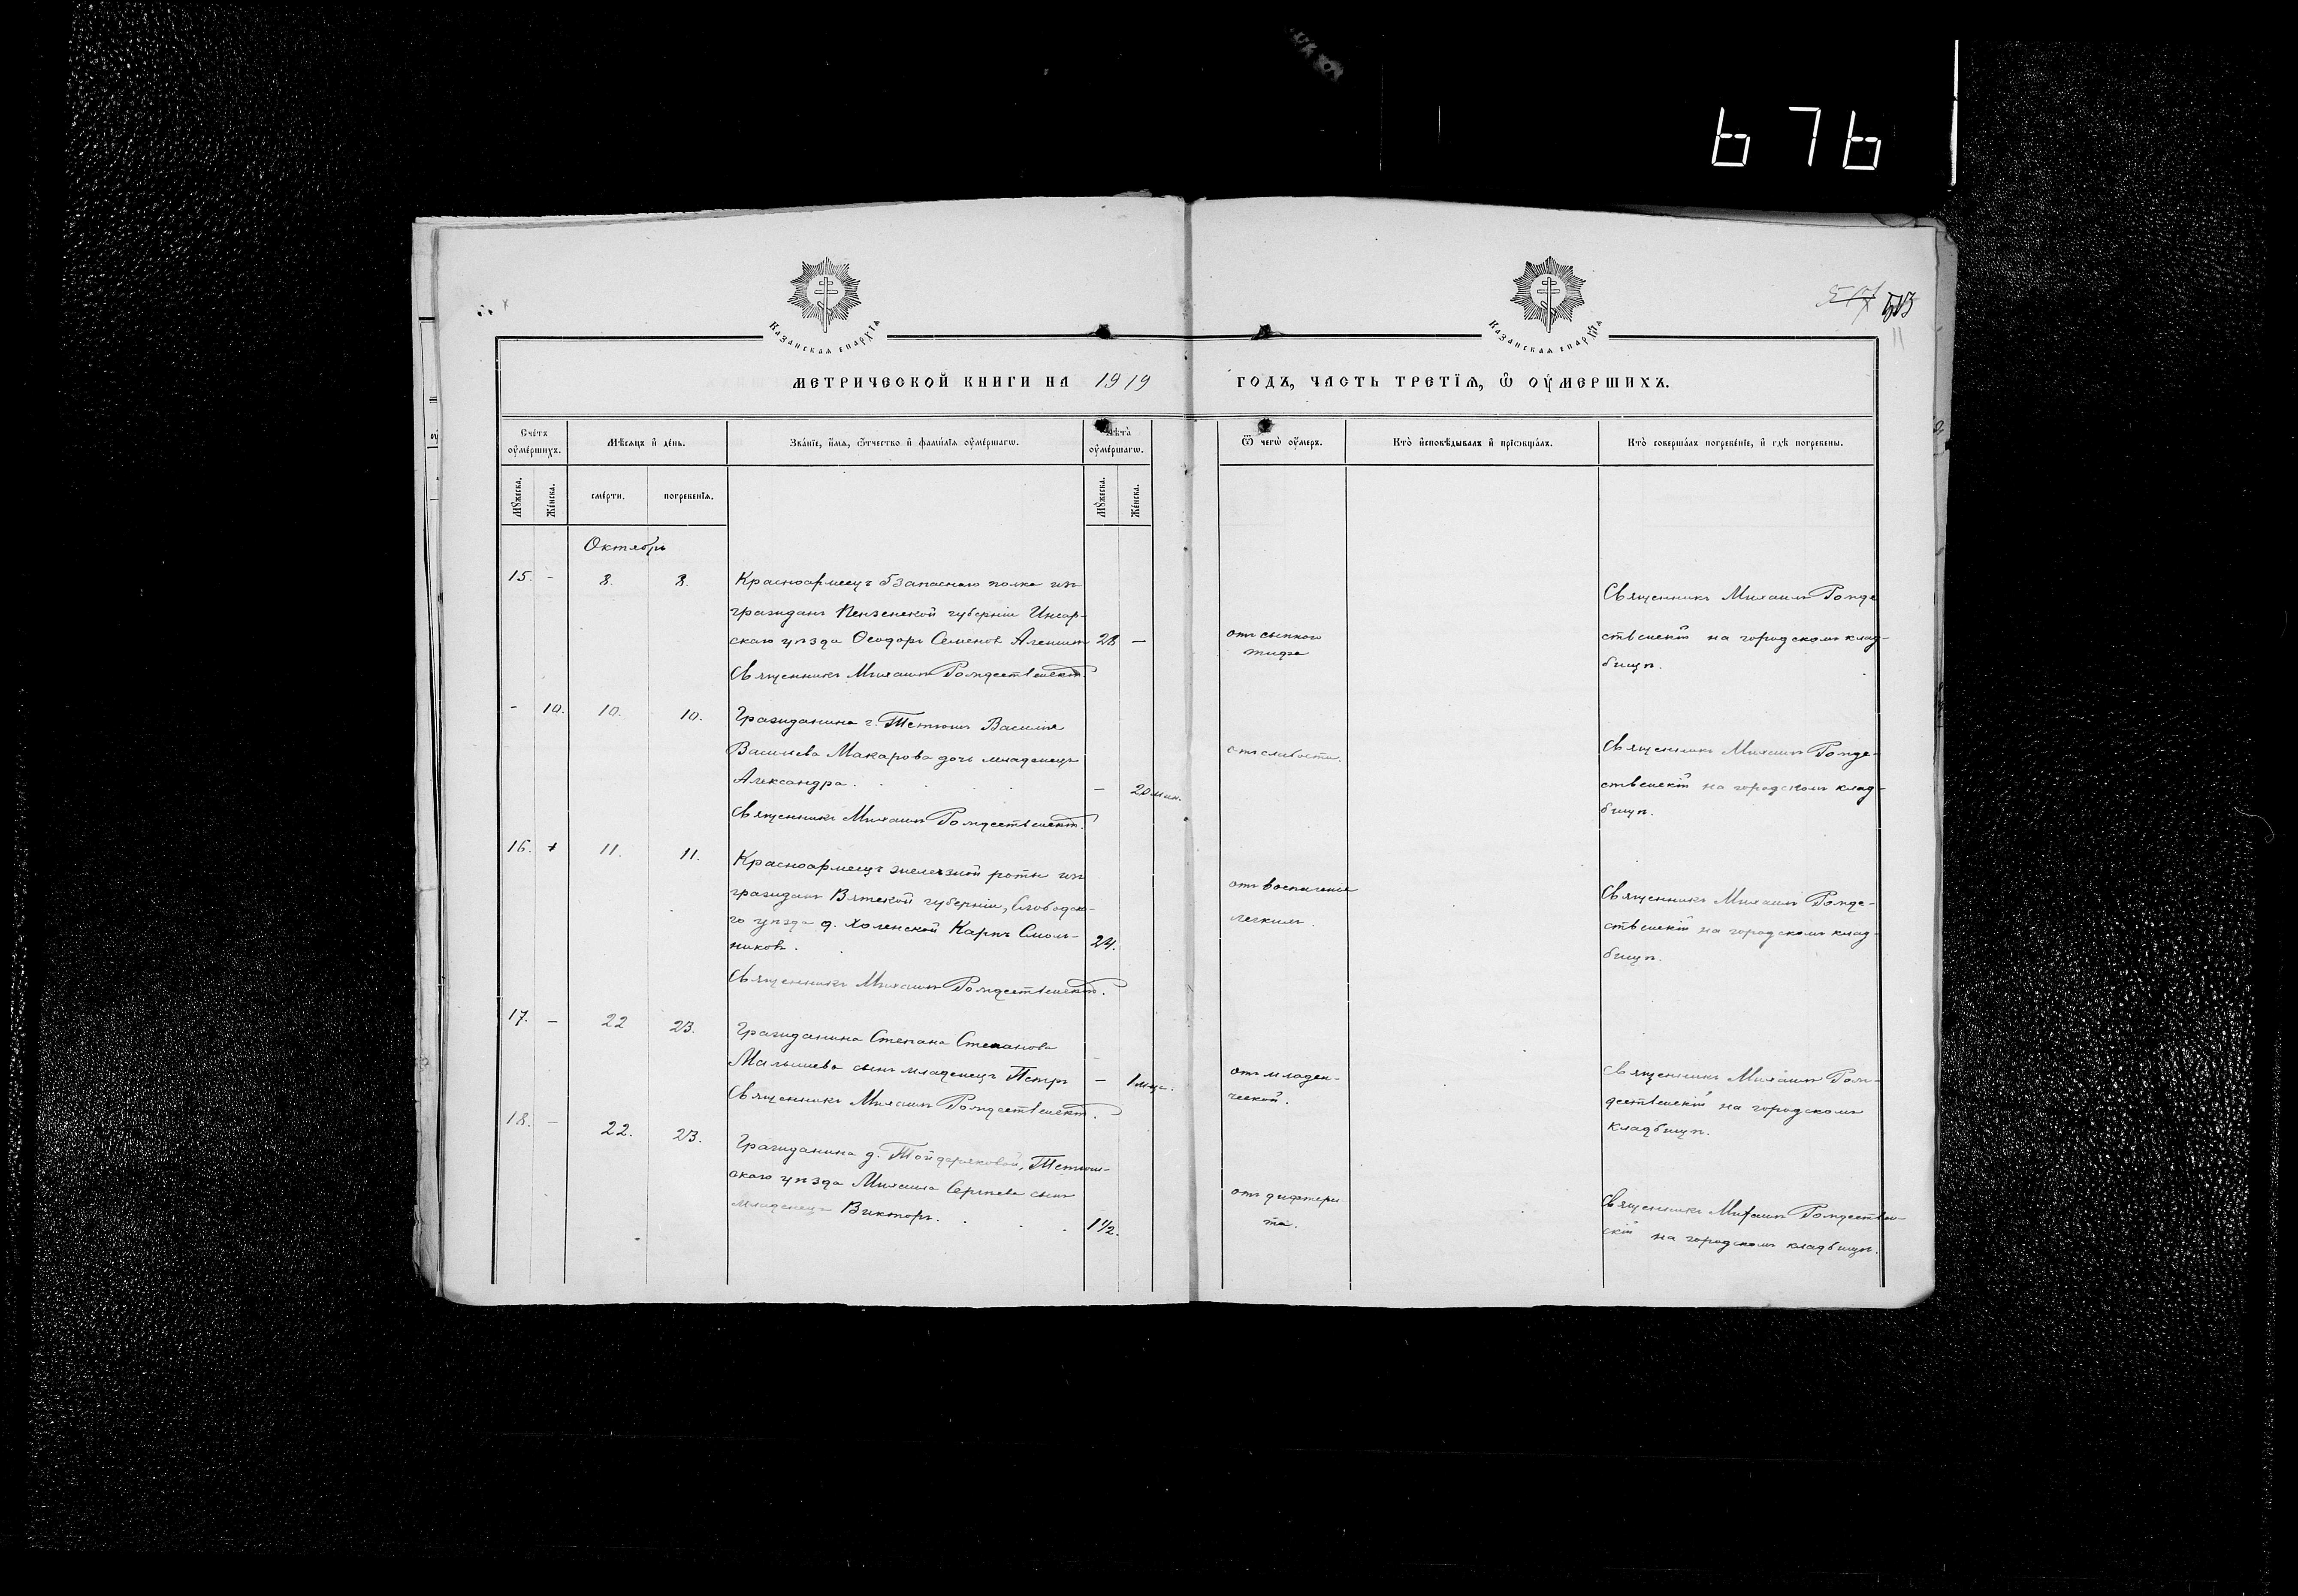 676
Казанская епархїа
Казанская епархїа
517 513
11
МЕТРИЧЕСКОЙ КНИГИ НА 1919 ГОДЪ, ЧАСТЬ ТРЕТІѦ, Ѿ ОУМЕРШИХЪ.
Счетъ оумершихъ.
Мѣсяцъ и день.
Званїе, имя, ѿчество и фамилїя оумершагѡ.
Лѣта оумершагѡ.
Ѿ чегѡ оумеръ.
Кто исповѣдывалъ и прїѡбщалъ.
Кто совершалъ погребенїе, и гдѣ погребены.
Мужеска.
Женска.
смерти.
погребенїя.
Мужеска.
Женска.
Октябрь
15. - 8. 8. Красноармеецъ 5 запаснаго полка изъ
гражданъ Пензенской губерніи Инсар-
скаго уѣзда Ѳеодоръ Семеновъ 28 —
Священникъ Михаилъ Рождественскій.
отъ сыпного
тифа
Священникъ Михаилъ Рожде
ственскій на городскомъ клад-
бищѣ.
- 10. 10. 10. Гражданина г. Тетюшъ Василія
Васильева Макарова дочь младенецъ
Александра. — 20 мин.
Священникъ Михаилъ Рождественскій.
отъ слабости.
Священникъ Михаилъ Рожде-
ственскій на городскомъ клад-
бищѣ.
16. + 11. 11. Красноармеецъ роты изъ
гражданъ Вятской губерніи, Слободско-
го уѣзда д. Холенской Карпъ Смоль-
никовъ. 24.
Священникъ Михаилъ Рождественскій.
отъ воспаленія
легкихъ.
Священникъ Михаилъ Рожде-
ственскій на городскомъ клад-
бищѣ.
17. — 22 23. Гражданина Степана Степанова
Малышева сынъ младенецъ Петръ — 1 мѣс.
Священникъ Михаилъ Рождественскій.
отъ младен-
ческой.
Священникъ Михаилъ Рож-
дественскій на городскомъ
кладбищѣ.
18. — 22. 23. Гражданина д. Тойдеряковой, Тетюш-
скаго уѣзда Михаила Сергѣева сынъ
младенецъ Викторъ. 1 1/2.
отъ дифтери
та.
Священникъ Михаилъ Рождествен-
скій на городскомъ кладбищѣ.